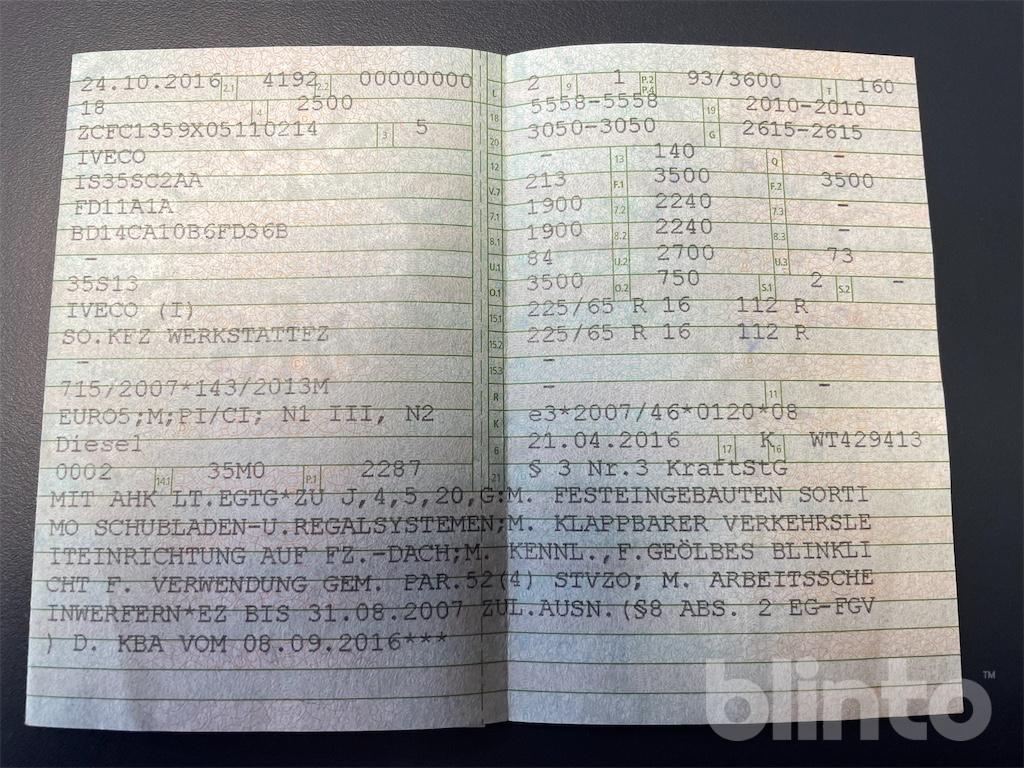 24.10.2016 2.1 4192 2.2 00000000
18 4 2500
ZCFC1359X05110214 3 5
IVECO
IS35SC2AA
FD11A1A
BD14CA10B6FD36B
-
35S13
IVECO (I)
SO.KFZ WERKSTATTFZ
-
715/2007*143/2013M
EURO5;M;PI/CI; N1 III, N2
Diesel
0002 14.1 35M0 P.1 2287
L 2 9 1 P.2 P.4 93/3600 T 160
18 5558-5558 19 2010-2010
20 3050-3050 G 2615-2615
12 - 13 140 Q -
V.7 213 F.1 3500 F.2 3500
7.1 1900 7.2 2240 7.3 -
8.1 1900 8.2 2240 8.3 -
U.1 84 U.2 2700 U.3 73
O.1 3500 O.2 750 S.1 2 S.2 -
15.1 225/65 R 16 112 R
15.2 225/65 R 16 112 R
15.3 -
R - 11 -
K e3*2007/46*0120*08
6 21.04.2016 17 K 16 WT429413
21 § 3 Nr.3 KraftStG
MIT AHK LT.EGTG*ZU J,4,5,20,G:M. FESTEINGEBAUTEN SORTI
MO SCHUBLADEN-U.REGALSYSTEMEN;M. KLAPPBARER VERKEHRSLE
ITEINRICHTUNG AUF FZ.-DACH;M. KENNL.,F.GEÖLBES BLINKLI
CHT F. VERWENDUNG GEM. PAR.52(4) STVZO; M. ARBEITSSCHE
INWERFERN*EZ BIS 31.08.2007 ZUL.AUSN.(§8 ABS. 2 EG-FGV
) D. KBA VOM 08.09.2016***
blinto™